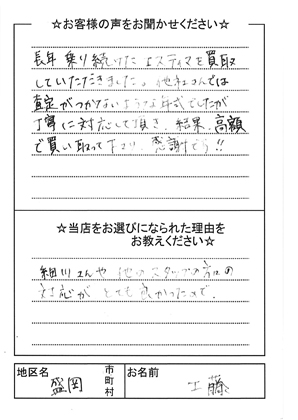 ☆お客様の声をお聞かせください☆
長年 乗り続けた エスティマを買取
していただきました。他社さんでは
査定がつかないような年式でしたが
丁寧に対応して頂き、結果、高額
で買い取って下さり、感謝です!!
☆当店をお選びになられた理由を
お教えください☆
細川さんや 他のスタッフの方の
対応が とても良かったので。
地区名
盛岡
市
町
村
お名前
工藤